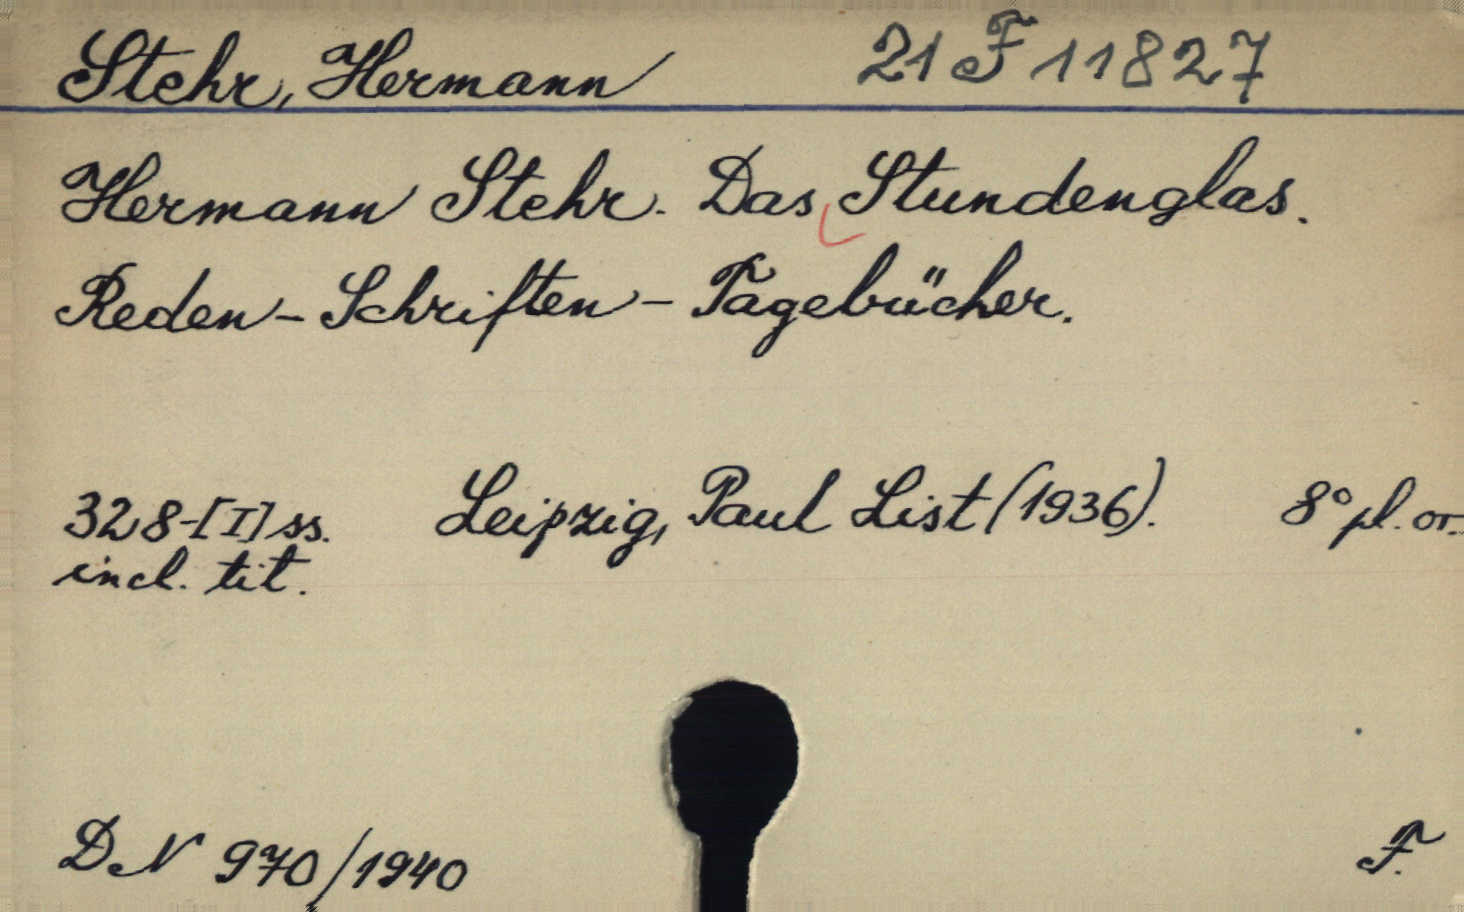 Stehr, Hermann 21 F 11827
Hermann Stehr. Das Stundenglas.
Reden - Schriften - Tagebücher.
328-[I] ss. Leipzig, Paul List (1936). 8° pl. or.
incl. tit.
DN 970/1940 F.